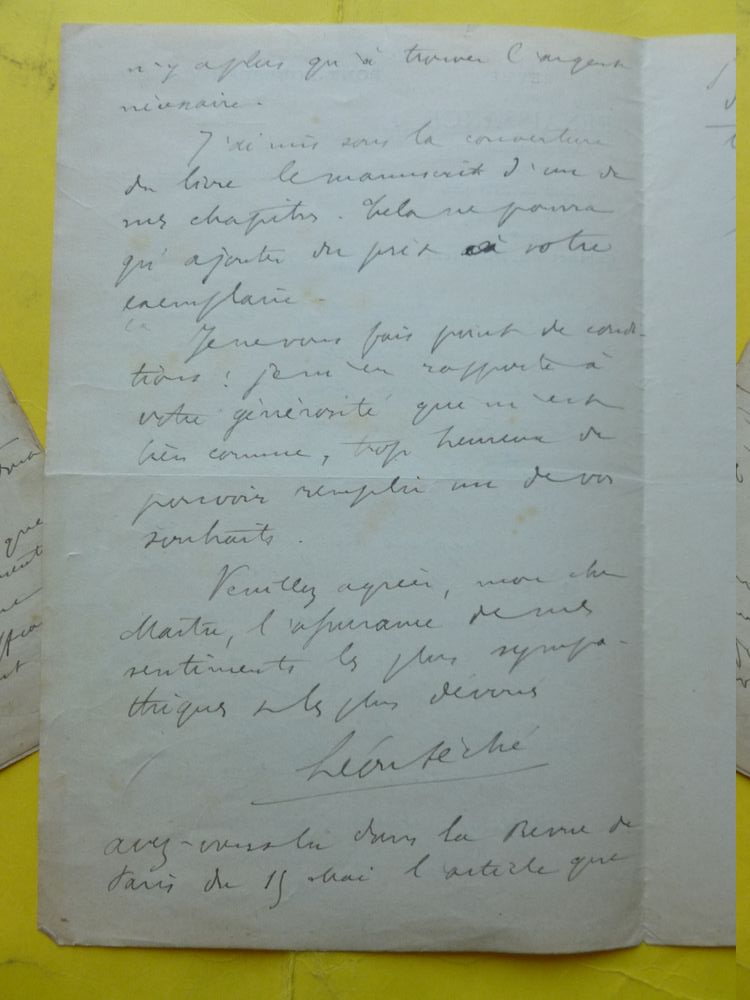 n'y a plus qu'à trouver l'argent
nécessaire.
J'ai mis sous la couverture
du livre le manuscrit d'un de
mes chapitres. Cela ne pourra
qu'ajouter du prix à votre
exemplaire.
Je ne vous fais point de condi-
tions : je m'en rapporte à
votre générosité que m'est
bien connue, trop heureux de
pouvoir remplir un de vos
souhaits.
Veuillez agréer, mon cher
Maître, l'assurance de mes
sentiments les plus sympa-
thiques et les plus dévoués
Léon Séché
avez-vous lu dans la Revue de
Paris du 15 Mai l'article que
que